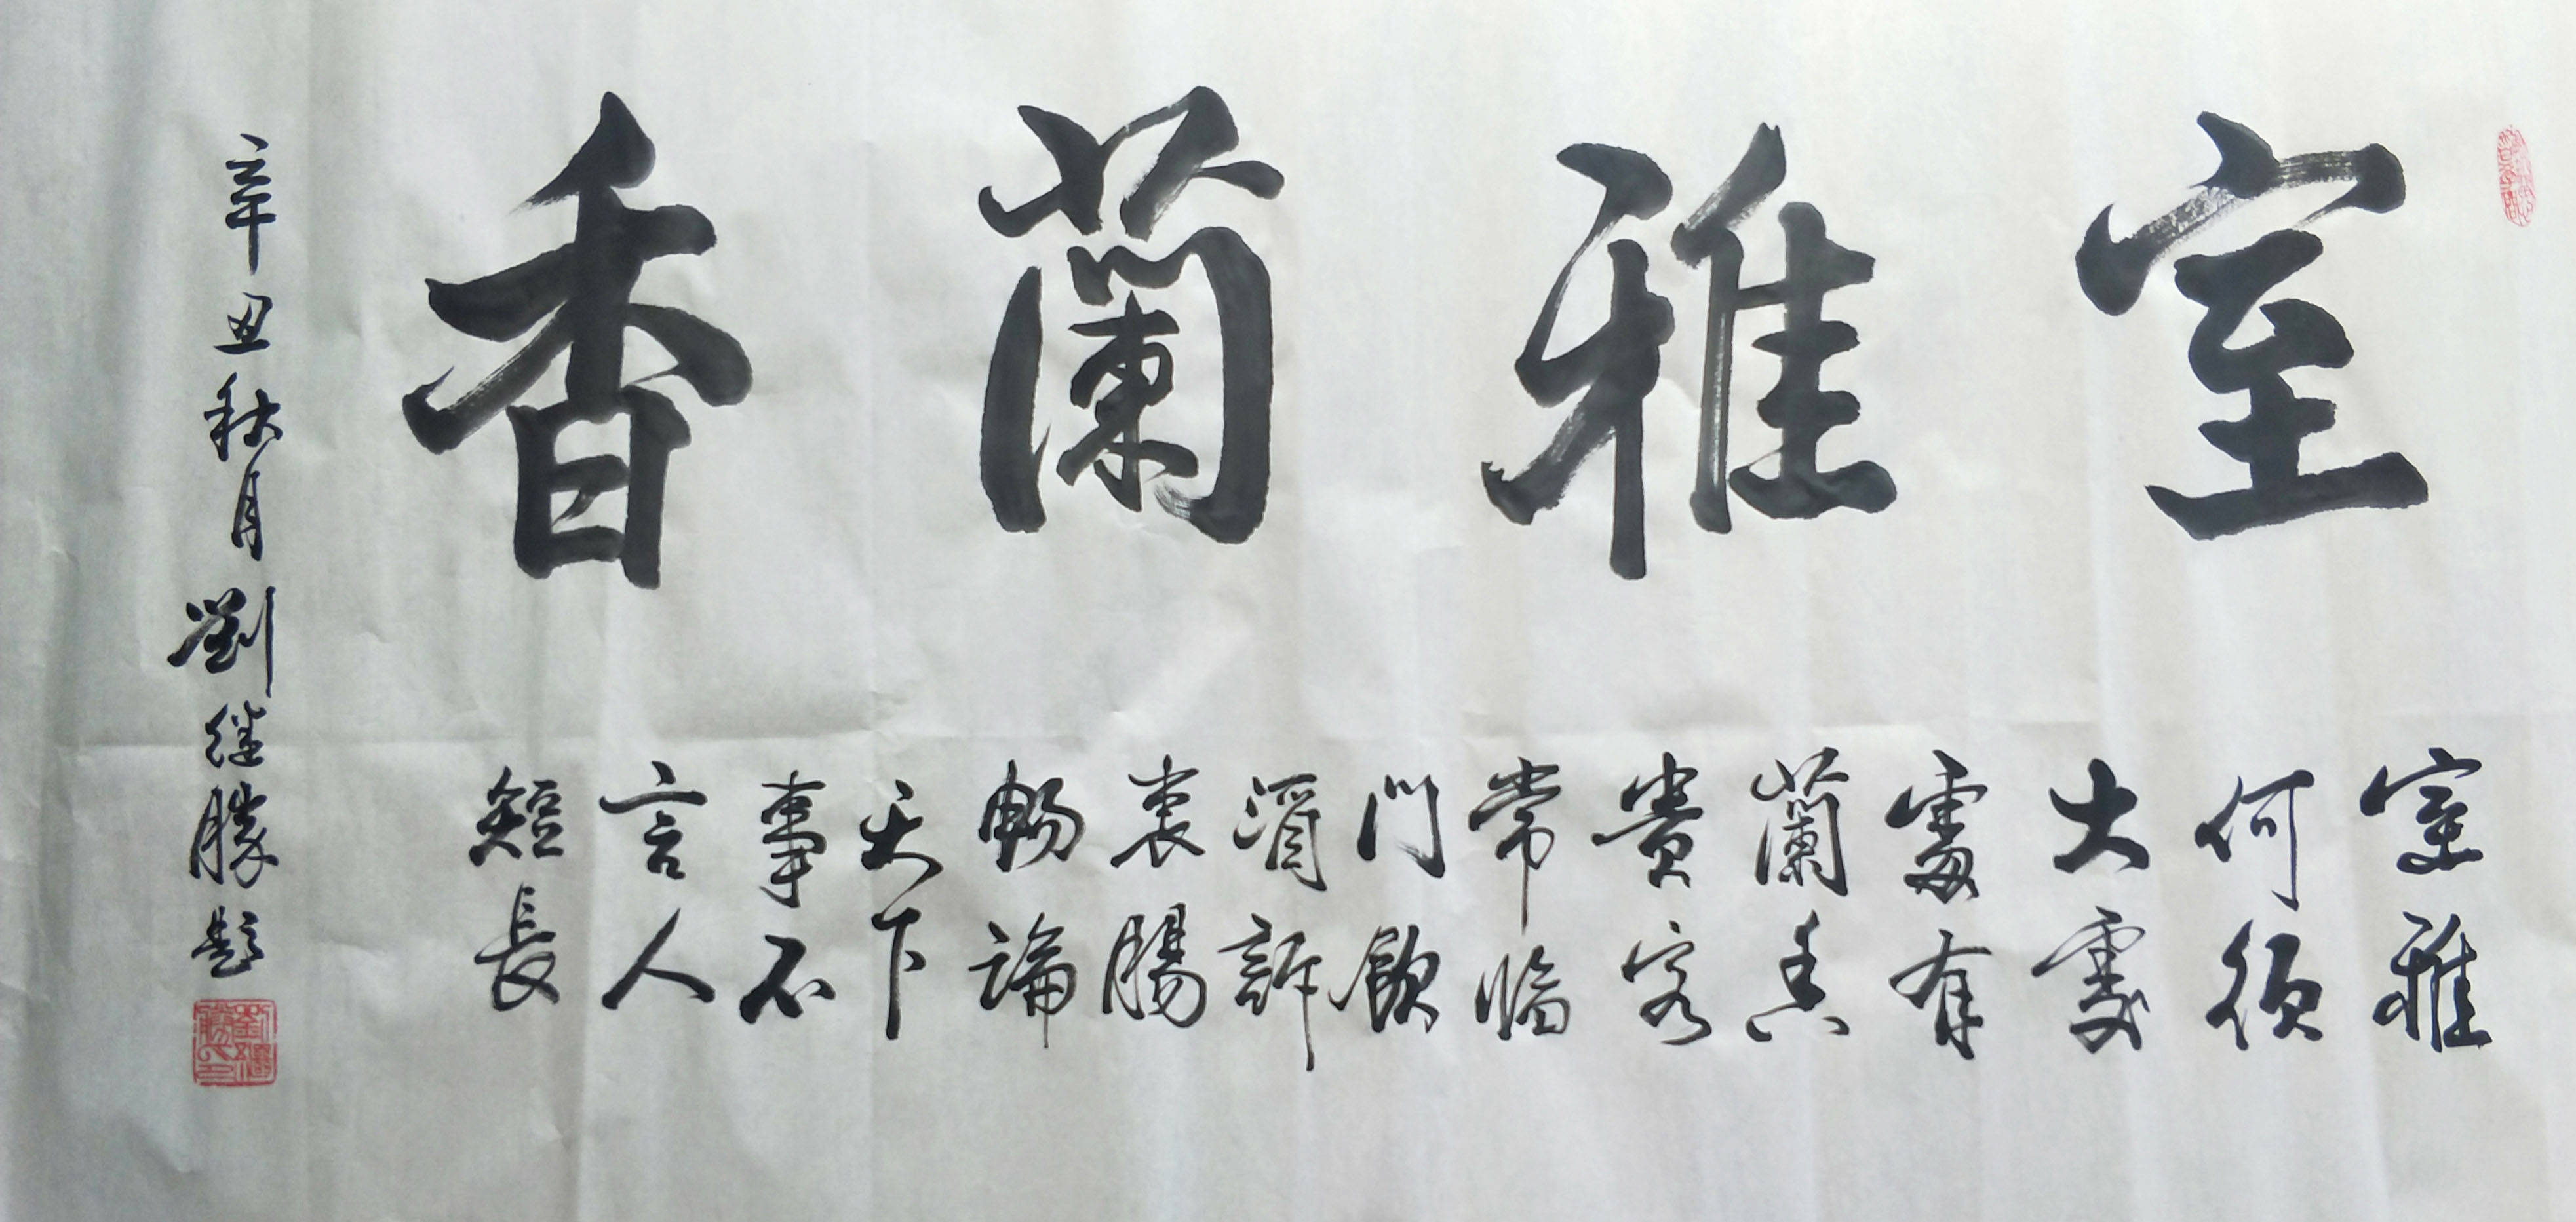 室雅蘭香
室雅
何須
大處
處有
蘭香
貴客
常臨
門飲
酒訴
衷腸
暢論
天下
事不
言人
短長
辛丑秋月劉继勝題
劉繼勝印